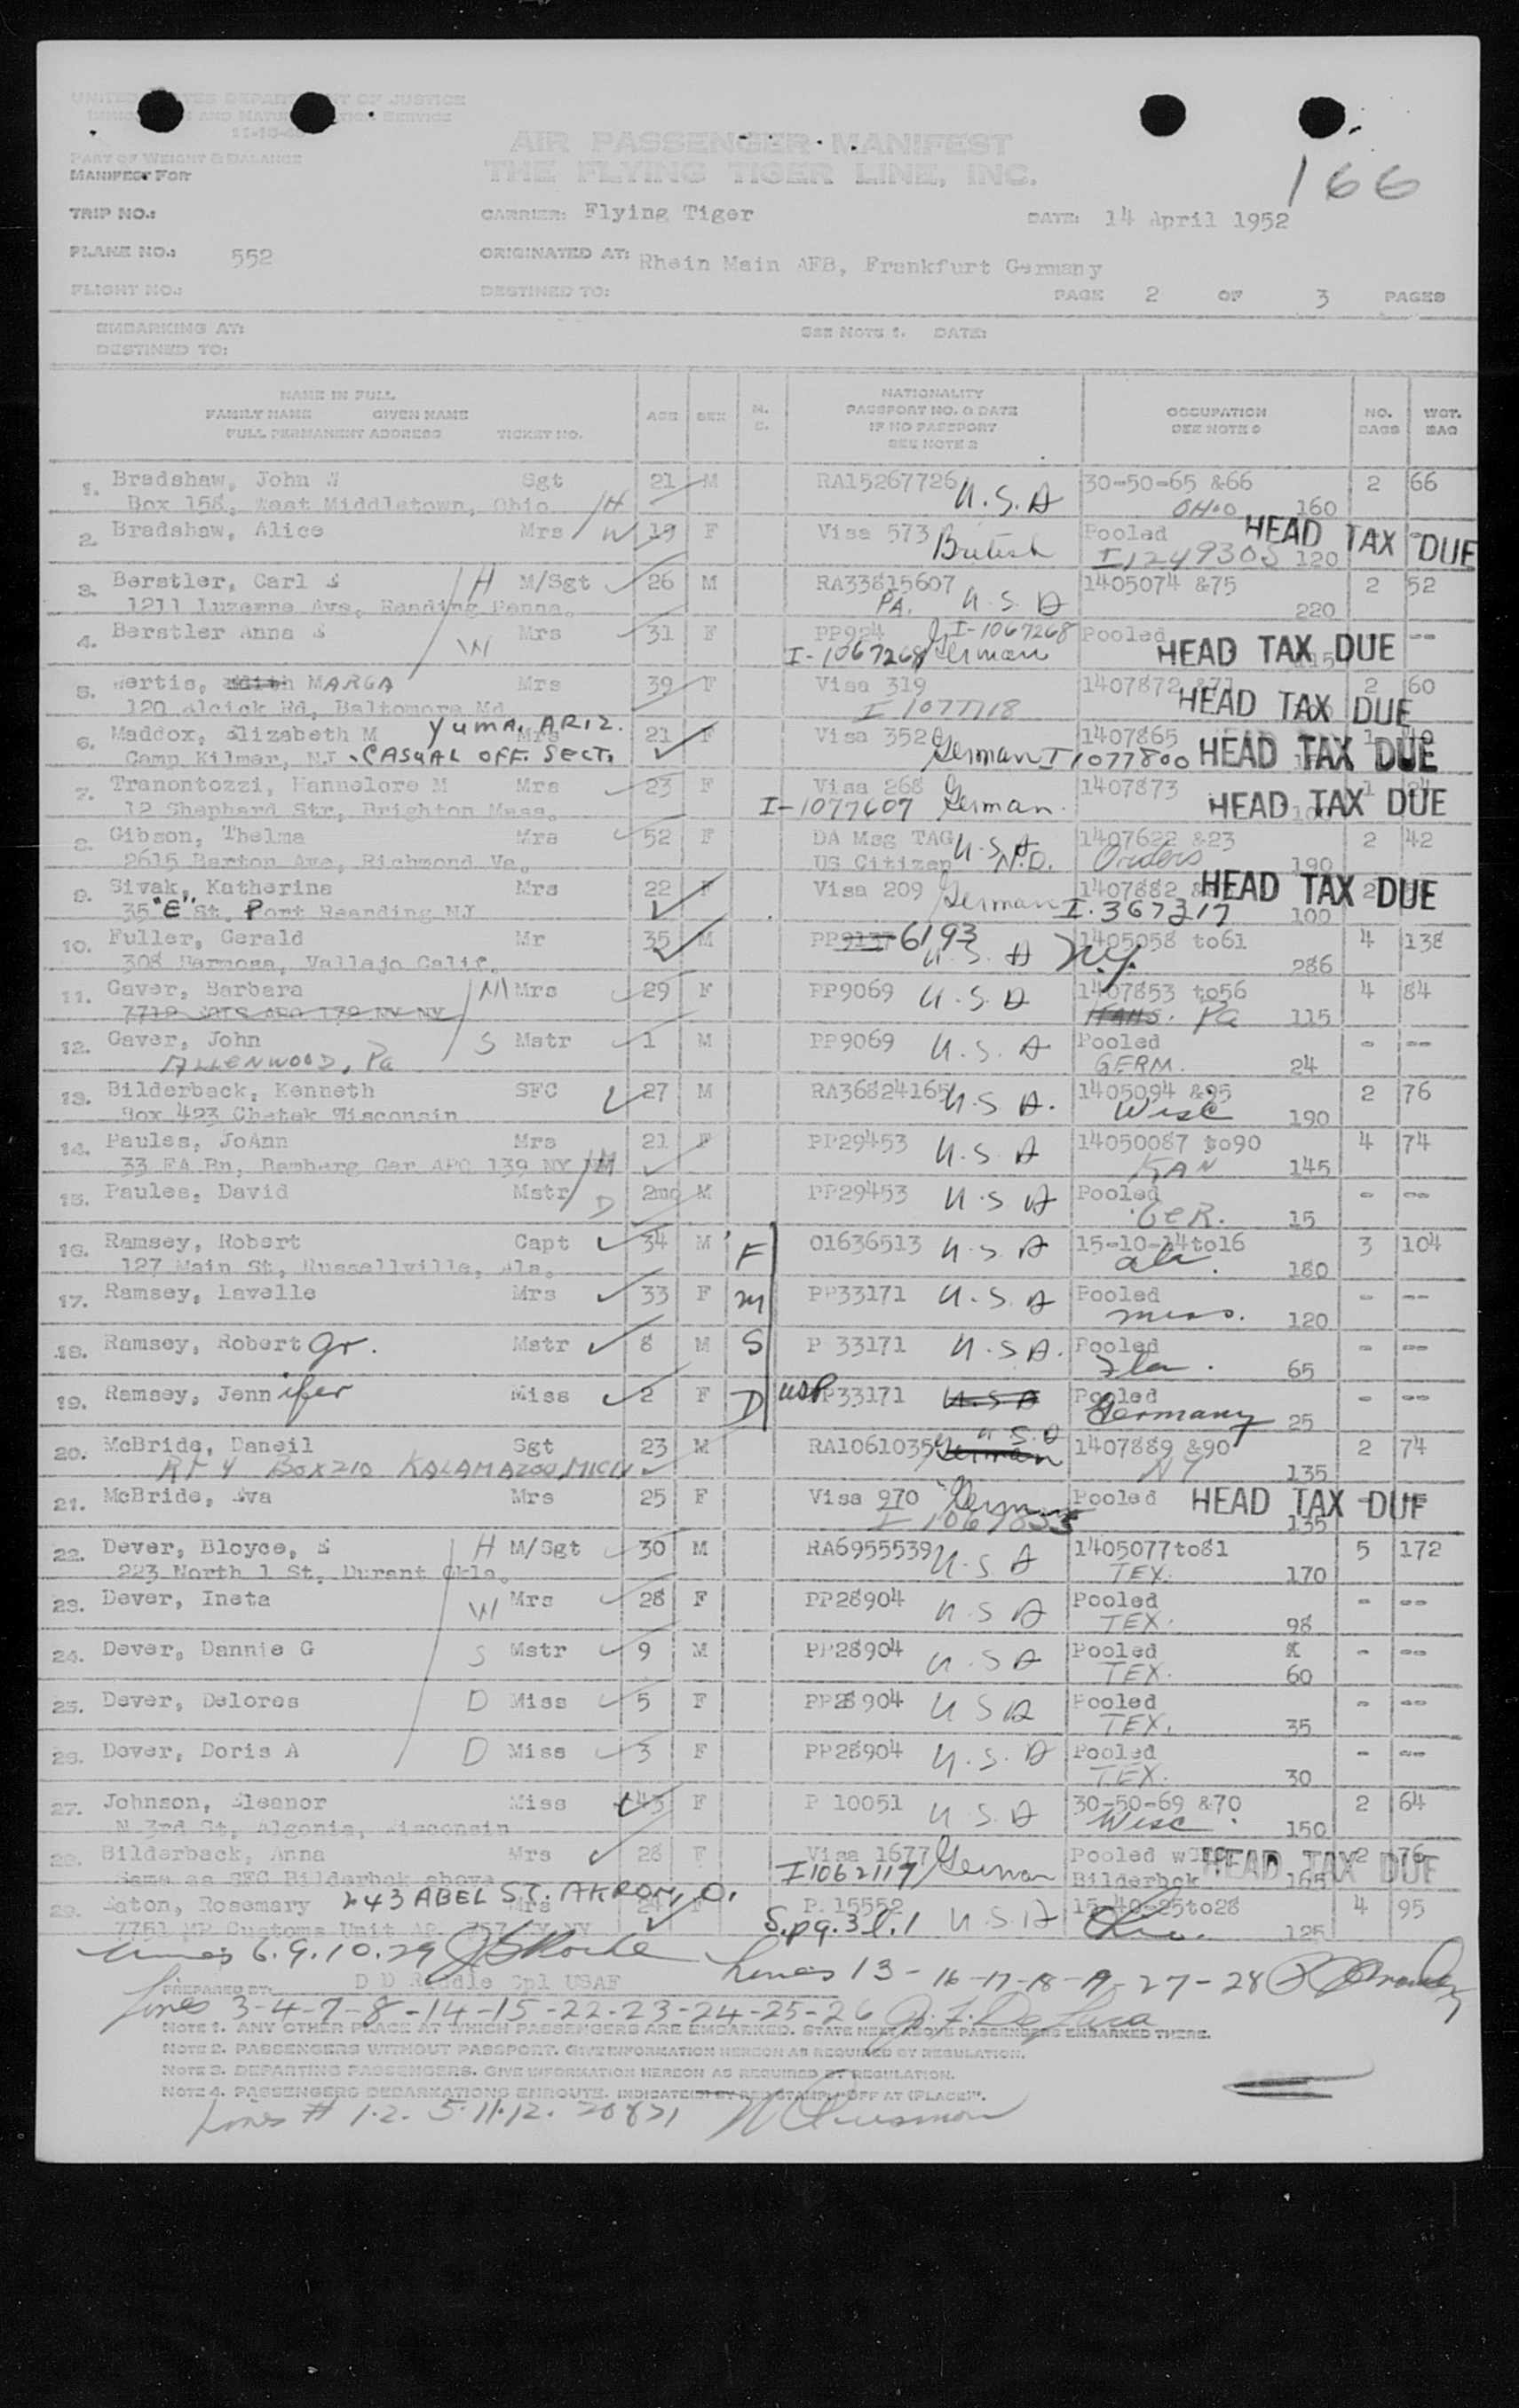 UNITED STATES DEPARTMENT OF JUSTICE
IMMIGRATION AND NATURALIZATION SERVICE
11-10-
AIR PASSENGER MANIFEST
PART OF WEIGHT & BALANCE
THE FLYING TIGER LINE, INC.
MANIFEST FOR
166
TRIP NO.: CARRIER: Flying Tiger DATE: 14 April 1952
PLANE NO.: 552 ORIGINATED AT: Rhein Main AFB, Frankfurt Germany
FLIGHT NO.: DESTINED TO: PAGE 2 OF 3 PAGES
EMBARKING AT: SEE NOTE 1. DATE:
DESTINED TO:
NAME IN FULL
FAMILY NAME GIVEN NAME
FULL PERMANENT ADDRESS TICKET NO. AGE SEX M. C. NATIONALITY PASSPORT NO. & DATE IF NO PASSPORT SEE NOTE 2 OCCUPATION SEE NOTE 3 NO. BAGS WGT. BAG
1. Bradshaw, John W Sgt 21 M RA15267726 U.S.A 30-50-65 &66 2 66
Box 158, West Middletown, Ohio H OHIO 160
2. Bradshaw, Alice Mrs W 19 F Visa 573 British Pooled HEAD TAX DUE
I1249305 120
3. Berstler, Carl E H M/Sgt 26 M RA33815607 1405074 &75 2 52
1211 Luzerne Ave, Reading Penna. PA. U.S.A 220
4. Berstler Anna E W Mrs 31 F PP924 I-1067268 Pooled --
I-1067268 German HEAD TAX DUE
5. Hertis, Edith MARGA Mrs 39 F Visa 319 1407872 &71 2 60
120 Alcick Rd, Baltomore Md I 1077718 HEAD TAX DUE
6. Maddox, Elizabeth M YUMA, ARIZ. Mrs 21 F Visa 3528 1407865 1
Camp Kilmer, NJ - CASUAL OFF. SECT. German I1077800 HEAD TAX DUE
7. Tranontozzi, Hannelore M Mrs 23 F Visa 268 1407873 1 24
12 Shephard Str, Brighton Mass. I-1077607 German HEAD TAX DUE
8. Gibson, Thelma Mrs 52 F DA Msg TAG U.S.A 1407622 &23 2 42
2615 Barton Ave, Richmond Va. US Citizen N.D. Orders 190
9. Sivak, Katherina Mrs 22 F Visa 209 German 1407882 HEAD TAX DUE 2
35 "E" St, Port Reanding NJ I.367317 100
10. Fuller, Gerald Mr 35 M PP9137 6193 1405058 to61 4 138
308 Hermosa, Vallejo Calif. U.S.A N.Y. 286
11. Gaver, Barbara M Mrs 29 F PP9069 U.S.A 1407853 to56 4 84
APO 172 NY NY Pa 115
12. Gaver, John S Mstr 1 M PP9069 U.S.A Pooled - --
ALLENWOOD, Pa GERM. 24
13. Bilderback, Kenneth SFC 27 M RA36824165 U.S.A. 1405094 &95 2 76
Box 423 Chetek Wisconsin Wisc 190
14. Paules, JoAnn Mrs 21 F PP29453 U.S.A 14050087 to90 4 74
33 FA Bn, Bamberg Ger APO 139 NY NY M KAN 145
15. Paules, David Mstr D 2mo M PP29453 U.S.A Pooled - --
GER. 15
16. Ramsey, Robert Capt 34 M F 01636513 U.S.A 15-10-14to16 3 104
127 Main St, Russellville, Ala. ala. 180
17. Ramsey, Lavelle Mrs 33 F M PP33171 U.S.A Pooled - --
miss. 120
18. Ramsey, Robert Jr. Mstr 8 M S P 33171 U.S.A. Pooled - --
65
19. Ramsey, Jennifer Miss 2 F D USP P33171 U.S.A Pooled - --
Germany 25
20. McBride, Daneil Sgt 23 M RA1061035 German U.S.A 1407889 &90 2 74
RT 4 BOX 210 KALAMAZOO, MICH NY 135
21. McBride, Eva Mrs 25 F Visa 970 German Pooled HEAD TAX DUE
I 1067855 135
22. Dever, Bloyce, E H M/Sgt 30 M RA6955539 U.S.A 1405077to81 5 172
223 North 1 St, Durant Okla. TEX. 170
23. Dever, Ineta W Mrs 28 F PP28904 U.S.A Pooled - --
TEX. 98
24. Dever, Dannie G S Mstr 9 M PP28904 U.S.A Pooled - --
TEX. 60
25. Dever, Delores D Miss 5 F PP28904 U S A Pooled - --
TEX. 35
26. Dever, Doris A D Miss 3 F PP28904 U.S.A Pooled - --
TEX. 30
27. Johnson, Eleanor Miss 43 F P 10051 U.S.A 30-50-69 &70 2 64
N 3rd St, Algonia, Wisconsin Wisc. 150
28. Bilderback, Anna Mrs 28 F Visa 1677 German Pooled w HEAD TAX DUE 2 76
Same as SFC Bilderbck above I1062117 Bilderbck 165
29. Eaton, Rosemary 243 ABEL ST. AKRON, O. Mrs 24 F P. 15552 15-40-25to28 4 95
7751 MP Customs Unit APO 757 NY NY S.pg.3 l.1 U.S.A Ohio. 125
Lines 6.9.10.29 Lines 13-16-17-18-19-27-28
PREPARED BY: D D Cpl USAF
Lines 3-4-7-8-14-15-22-23-24-25-26 J. F. DeLuca
NOTE 1. ANY OTHER PLACE AT WHICH PASSENGERS ARE EMBARKED. STATE NEXT ABOVE PASSENGERS EMBARKED THERE.
NOTE 2. PASSENGERS WITHOUT PASSPORT. GIVE INFORMATION HEREON AS REQUIRED BY REGULATION.
NOTE 3. DEPARTING PASSENGERS. GIVE INFORMATION HEREON AS REQUIRED BY REGULATION.
NOTE 4. PASSENGERS DEBARKATIONS ENROUTE. INDICATE BY RED STAMP "OFF AT (PLACE)".
Lines # 1.2. 5.11.12. 20 & 21